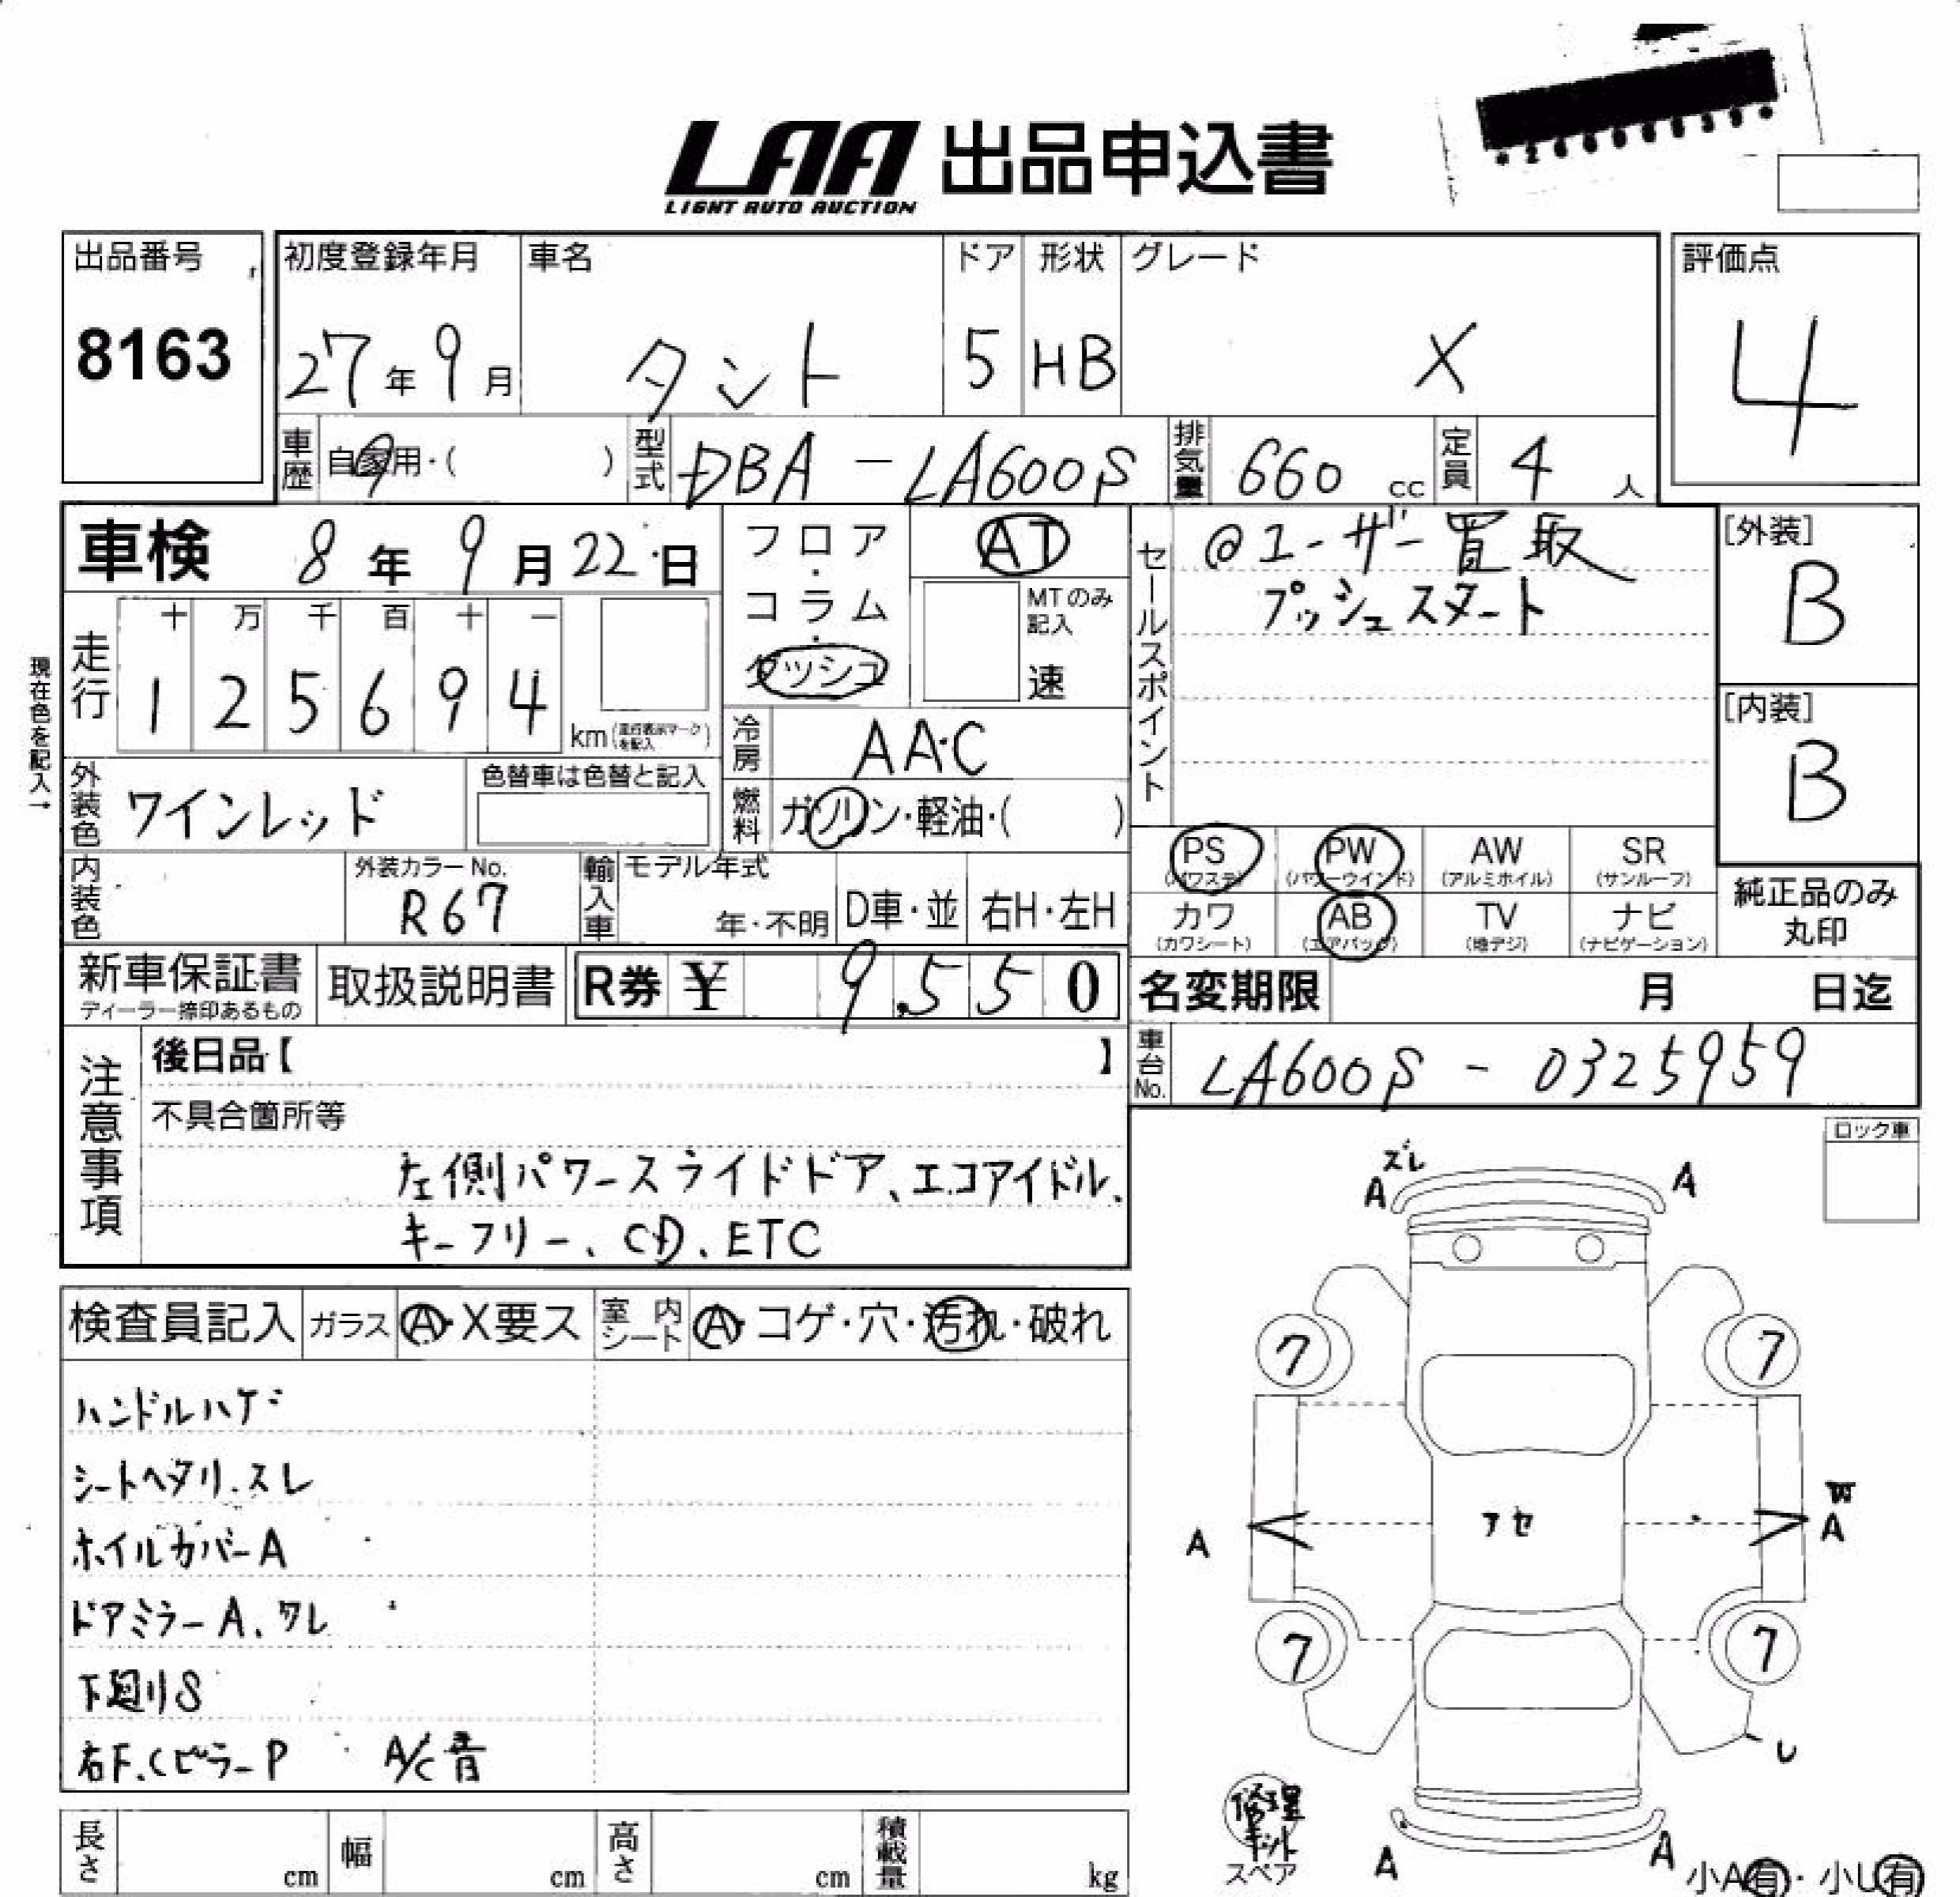 LAA 出品申込書
LIGHT AUTO AUCTION
出品番号
8163
初度登録年月
27年9月
車名
タント
ドア
5
形状
HB
グレード
X
評価点
4
車歴 自家用・( )
型式 DBA-LA600S
排気量 660 cc
定員 4 人
車検 8年9月22日
フロア・コラム・ダッシュ
AT
MTのみ記入
速
セールスポイント
@ユーザー買取
プッシュスタート
[外装]
B
[内装]
B
現在色を記入→
走行
十 万 千 百 十 一
1 2 5 6 9 4
km (走行表示マークを記入)
冷房 AAC
燃料 ガソリン・軽油・( )
外装色 ワインレッド
色替車は色替と記入
内装色
外装カラーNo.
R67
輸入車
モデル年式
年・不明
D車・並
右H・左H
PS (パワステ)
PW (パワーウインド)
AW (アルミホイル)
SR (サンルーフ)
カワ (カワシート)
AB (エアバック)
TV (地デジ)
ナビ (ナビゲーション)
純正品のみ
丸印
新車保証書
ディーラー捺印あるもの
取扱説明書
R券 ¥ 9,550
名変期限 月 日迄
車台No. LA600S-0325959
注意事項
後日品【 】
不具合箇所等
左側パワースライドドア、エコアイドル、
キーフリー、CD、ETC
ロック車
検査員記入
ガラス A・X要ス
室内シート A・コゲ・穴・汚れ・破れ
ハンドルハゲ
シートヘタリ.スレ
ホイルカバーA
ドアミラーA、ワレ
下廻りS
右F.CピラーP A/C音
ズレ
A
A
7
7
アセ
A
A
7
7
U
修理キット
スペア
A
A
小A有・小U有
長さ cm
幅 cm
高さ cm
積載量 kg